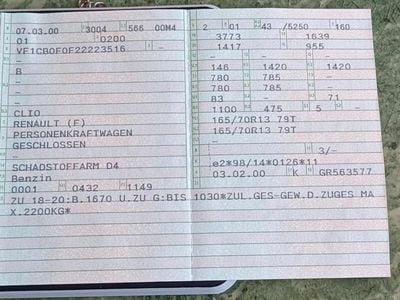 07.03.00 3004 566 00M4
01 0200
VF1CB0F0F22223516 -
-
B
-
-
-
CLIO
RENAULT (F)
PERSONENKRAFTWAGEN
GESCHLOSSEN
-
SCHADSTOFFARM D4
Benzin
0001 0432 1149
2 01 43 /5250 160
3773 1639
1417 955
-
146 1420 1420
780 785 -
780 785 -
83 - 71
1100 475 5 -
165/70R13 79T
165/70R13 79T
-
- 3/-
e2*98/14*0126*11
03.02.00 K GR563577
ZU 18-20:B.1670 U.ZU G:BIS 1030*ZUL.GES-GEW.D.ZUGES MA
X.2200KG*